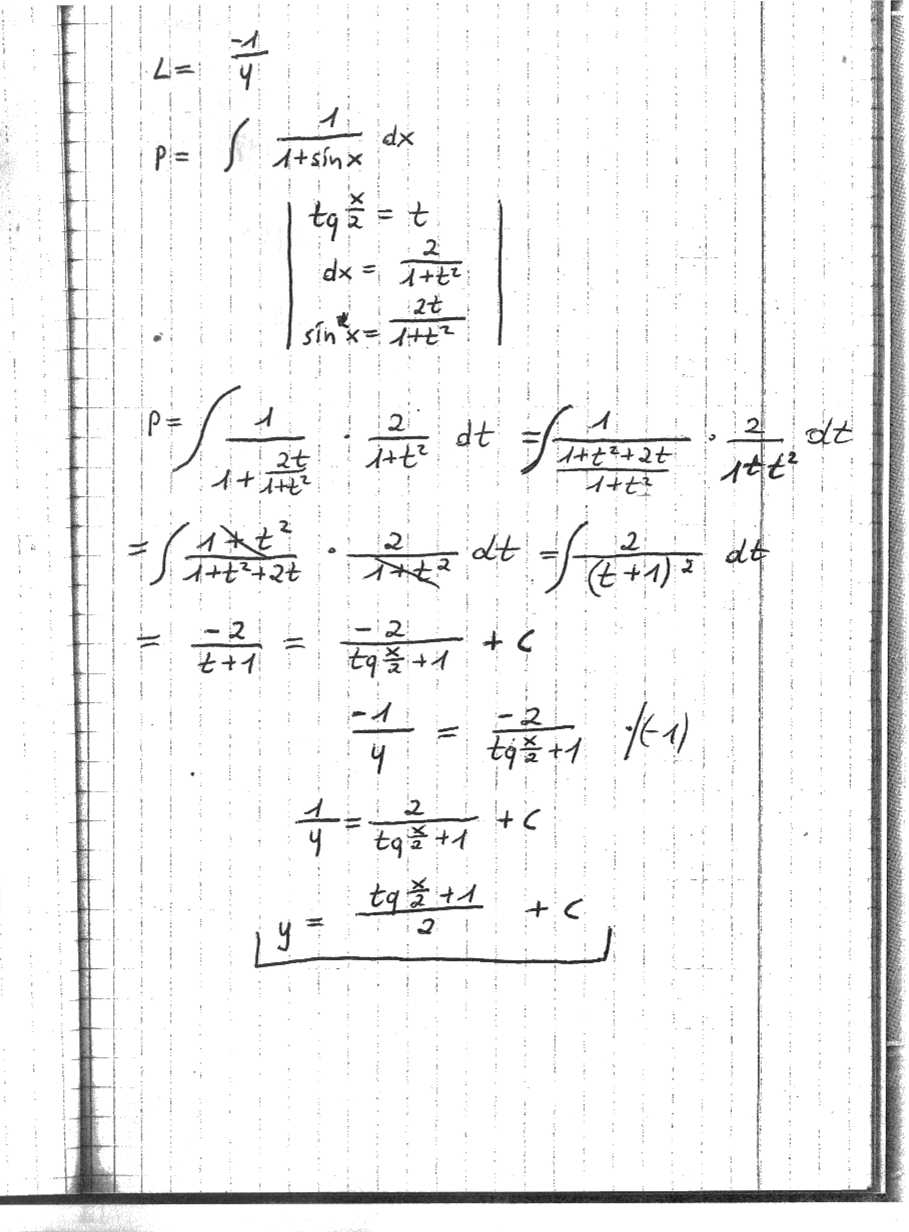 L = \frac{-1}{y}
P = \int \frac{1}{1+\sin x} dx
tg \frac{x}{2} = t
dx = \frac{2}{1+t^2}
\sin x = \frac{2t}{1+t^2}
P = \int \frac{1}{1+\frac{2t}{1+t^2}} \cdot \frac{2}{1+t^2} dt = \int \frac{1}{\frac{1+t^2+2t}{1+t^2}} \cdot \frac{2}{1+t^2} dt
= \int \frac{1+t^2}{1+t^2+2t} \cdot \frac{2}{1+t^2} dt = \int \frac{2}{(t+1)^2} dt
= \frac{-2}{t+1} = \frac{-2}{tg \frac{x}{2}+1} + C
\frac{-1}{y} = \frac{-2}{tg \frac{x}{2}+1} ·/(-1)
\frac{1}{y} = \frac{2}{tg \frac{x}{2}+1} + C
y = \frac{tg \frac{x}{2}+1}{2} + C